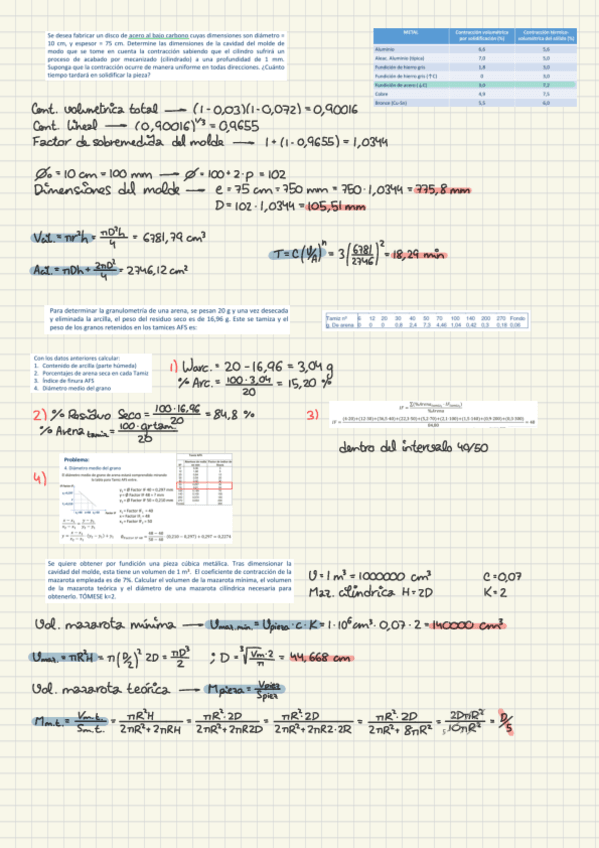 Se desea fabricar un disco de acero al bajo carbono cuyas dimensiones son diámetro =
10 cm, y espesor = 75 cm. Determine las dimensiones de la cavidad del molde de
modo que se tome en cuenta la contracción sabiendo que el cilindro sufrirá un
proceso de acabado por mecanizado (cilindrado) a una profundidad de 1 mm.
Suponga que la contracción ocurre de manera uniforme en todas direcciones. ¿Cuánto
tiempo tardará en solidificar la pieza?
METAL Contracción volumétrica por solidificación (%) Contracción térmico-volumétrica del sólido (%)
Aluminio 6,6 5,6
Aleac. Aluminio (típica) 7,0 5,0
Fundición de hierro gris 1,8 3,0
Fundición de hierro gris (↑C) 0 3,0
Fundición de acero (↓C) 3,0 7,2
Cobre 4,9 7,5
Bronce (Cu-Sn) 5,5 6,0
Cont. volumetrica total → (1-0,03)(1-0,072) = 0,90016
Cont. lineal → (0,90016)^1/3 = 0,9655
Factor de sobremedida del molde → 1+(1-0,9655) = 1,0344
Ø₀ = 10 cm = 100 mm → Ø = 100+2·p = 102
Dimensiones del molde → e = 75 cm = 750 mm = 750·1,0344 = 775,8 mm
D = 102·1,0344 = 105,51 mm
Vcil. = πr²h = πD²h/4 = 6781,79 cm³
T = C(V/A)^n = 3(6781/2746)² = 18,29 min
Acil = πDh + 2πD²/4 = 2746,12 cm²
Para determinar la granulometría de una arena, se pesan 20 g y una vez desecada
y eliminada la arcilla, el peso del residuo seco es de 16,96 g. Este se tamiza y el
peso de los granos retenidos en los tamices AFS es:
Tamiz nº 6 12 20 30 40 50 70 100 140 200 270 Fondo
g. De arena 0 0 0 0,8 2,4 7,3 4,46 1,04 0,42 0,3 0,18 0,06
Con los datos anteriores calcular:
1. Contenido de arcilla (parte húmeda)
2. Porcentajes de arena seca en cada Tamiz
3. Índice de finura AFS
4. Diámetro medio del grano
1) Warc. = 20-16,96 = 3,04 g
% Arc. = 100·3,04/20 = 15,20 %
2) % Residuo Seco = 100·16,96/20 = 84,8 %
% Arena tamiz = 100·gr tam./20
3)
dentro del intervalo 40/50
4)
Problema:
4. Diámetro medio del grano
Se quiere obtener por fundición una pieza cúbica metálica. Tras dimensionar la
cavidad del molde, esta tiene un volumen de 1 m³. El coeficiente de contracción de la
mazarota empleada es de 7%. Calcular el volumen de la mazarota mínima, el volumen
de la mazarota teórica y el diámetro de una mazarota cilíndrica necesaria para
obtenerlo. TÓMESE k=2.
V = 1 m³ = 1000000 cm³ C = 0,07
Maz. cilindrica H = 2D K = 2
Vol. mazarota mínima → Vmaz.min. = Vpieza·C·K = 1·10⁶cm³·0,07·2 = 140000 cm³
Vmaz. = πR²H = π(D/2)² 2D = πD³/2 ; D = ∛(Vm·2/π) = 44,668 cm
Vol. mazarota teórica → Mpieza = Vpiez/Spiez
Mm.t. = Vm.t./Sm.t. = πR²H/2πR²+2πRH = πR²·2D/2πR²+2πR2D = πR²·2D/2πR²+2πR2·2R = πR²·2D/2πR²+8πR² = 2DπR²/10πR² = D/5